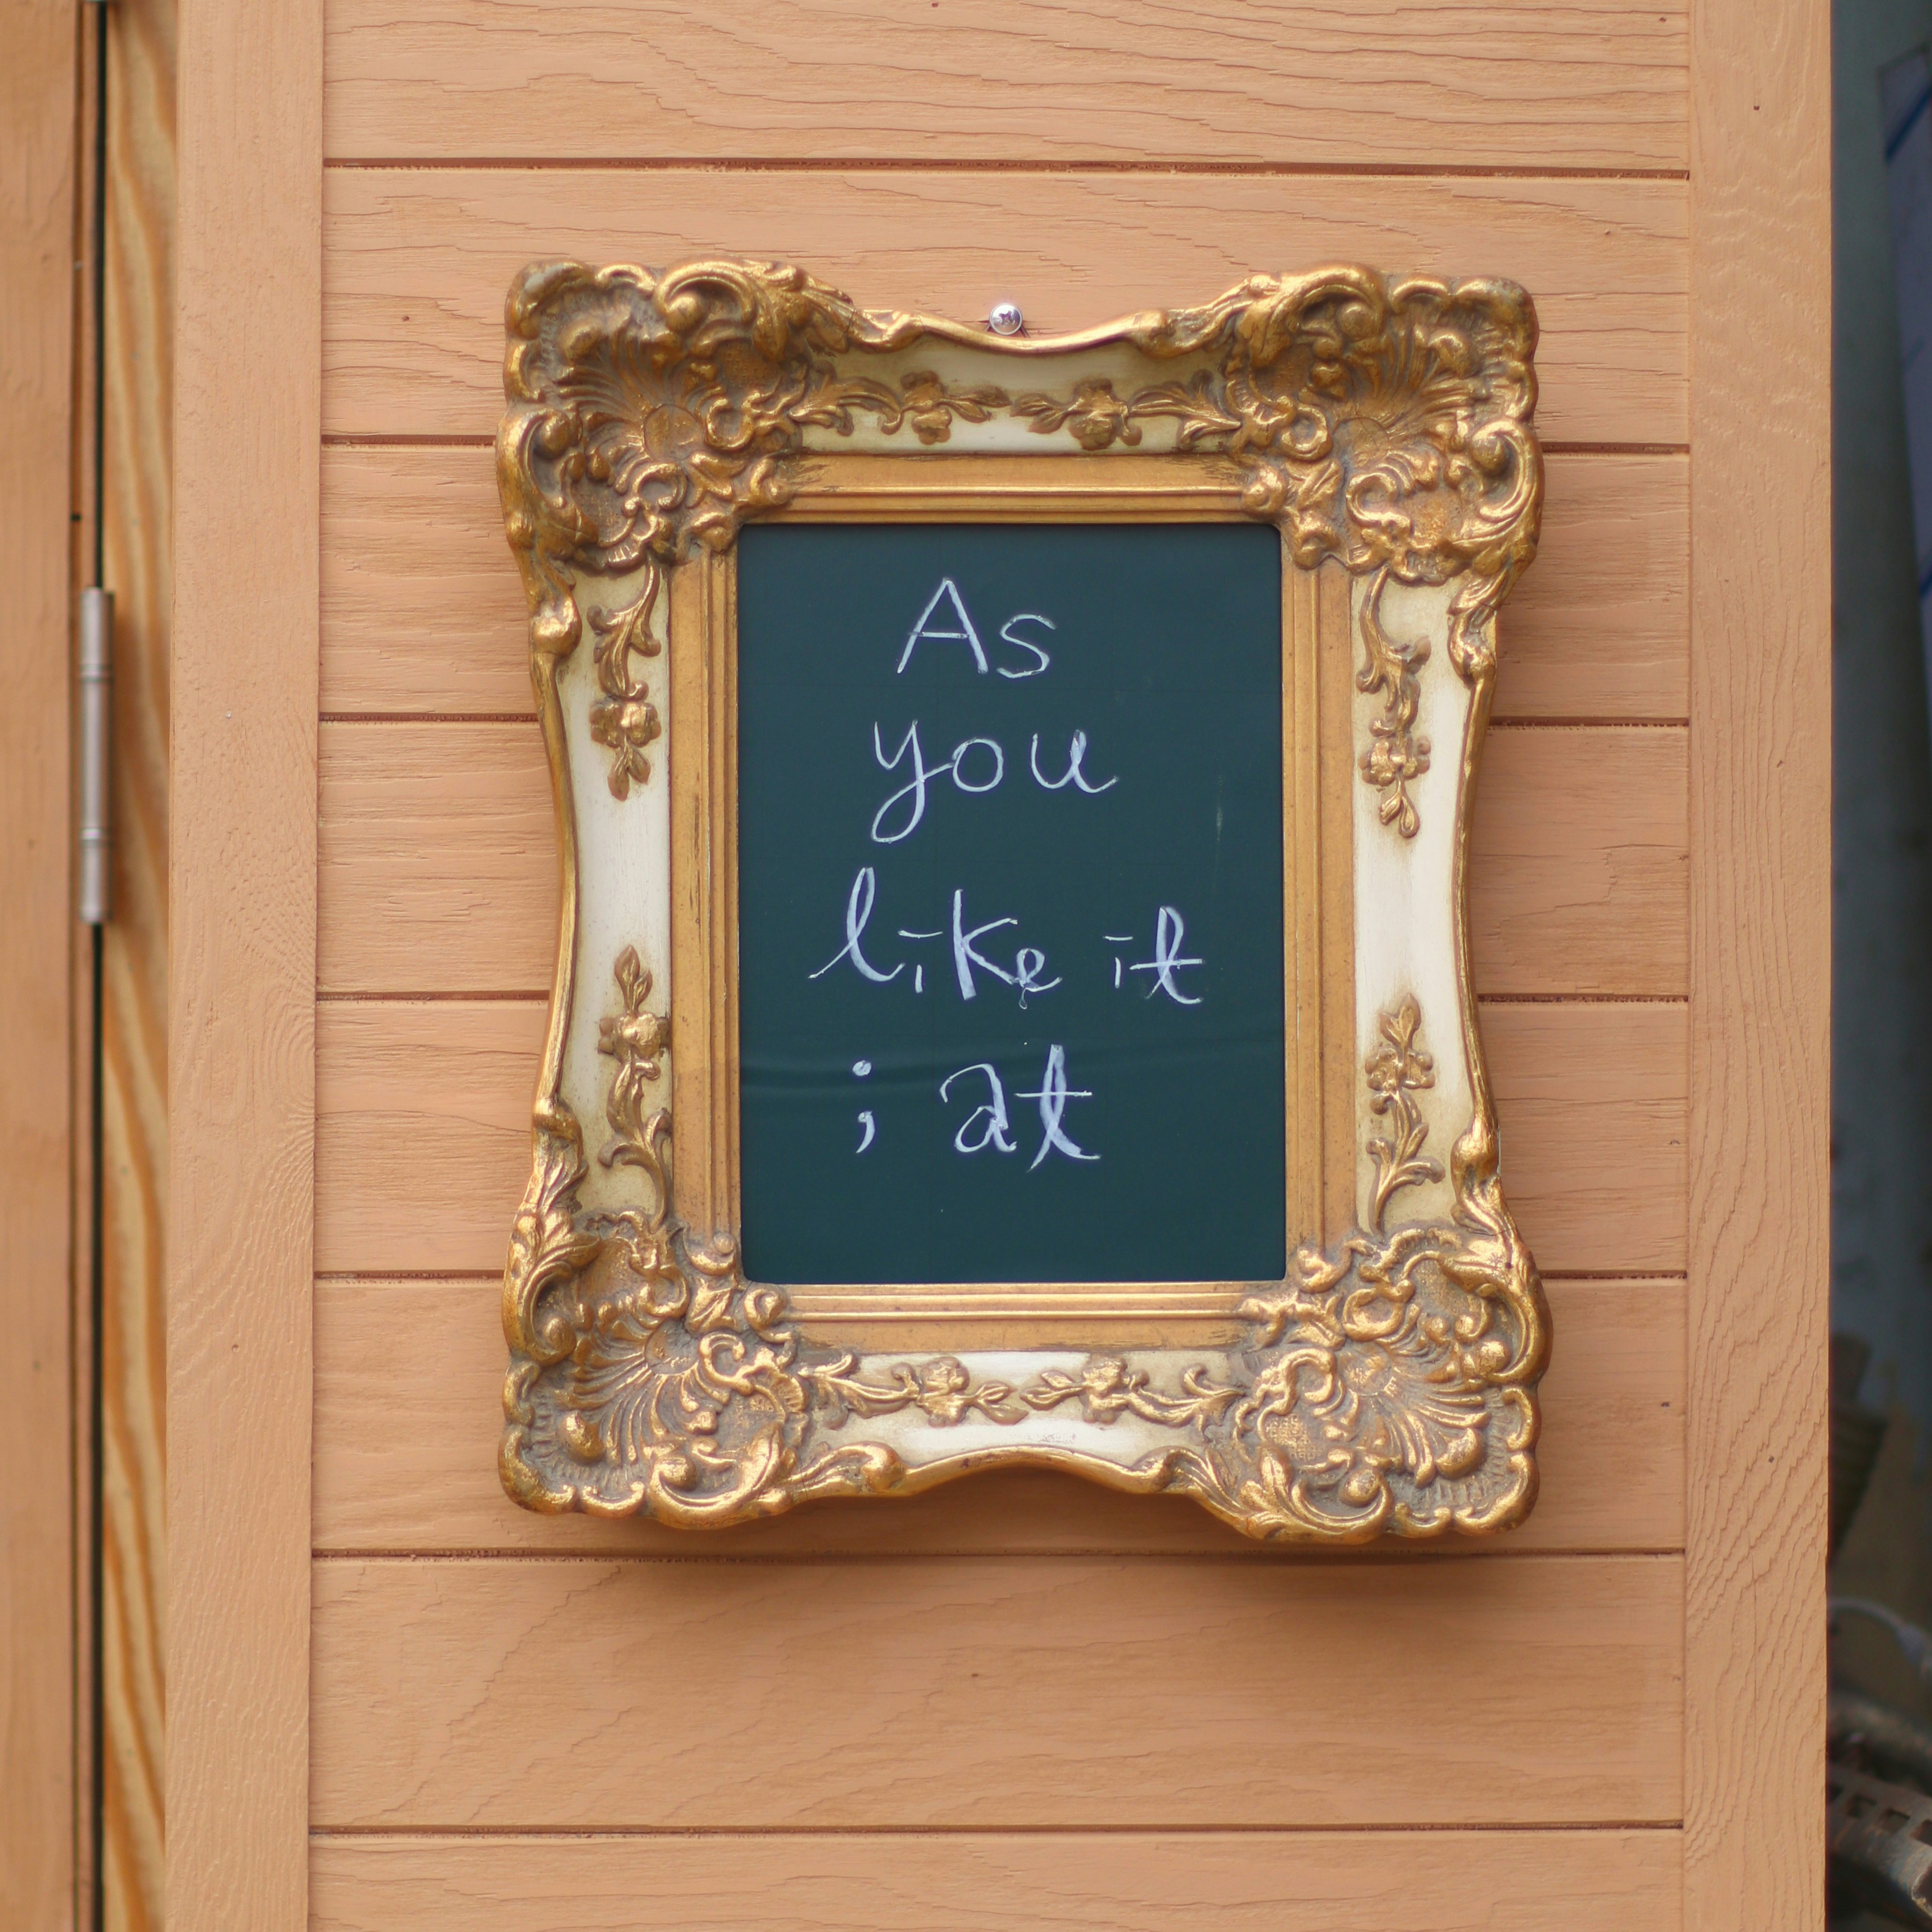 As
you
like it
; at